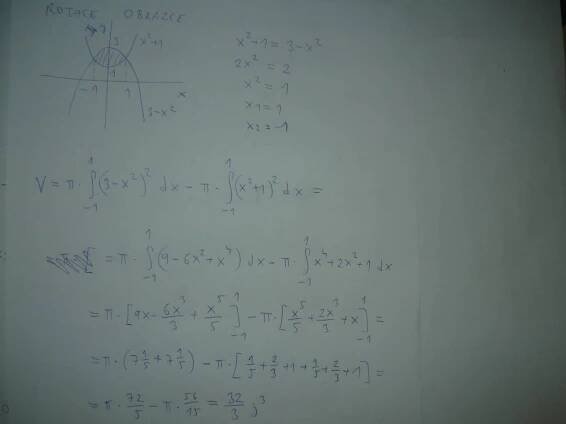 ROTACE OBRAZCE
y
3
x²+1
1
-1 1 x
3-x²
x²+1 = 3-x²
2x² = 2
x² = 1
x1 = 1
x2 = -1
V = π · ∫₋₁¹ (3-x²)² dx - π · ∫₋₁¹ (x²+1)² dx =
= π · ∫₋₁¹ (9-6x²+x⁴) dx - π · ∫₋₁¹ x⁴+2x²+1 dx
= π · [9x - 6x³/3 + x⁵/5]₋₁¹ - π · [x⁵/5 + 2x³/3 + x]₋₁¹ =
= π · (7 1/5 + 7 1/5) - π · [1/5 + 2/3 + 1 + 1/5 + 2/3 + 1] =
= π · 72/5 - π · 56/15 = 32/3 j³